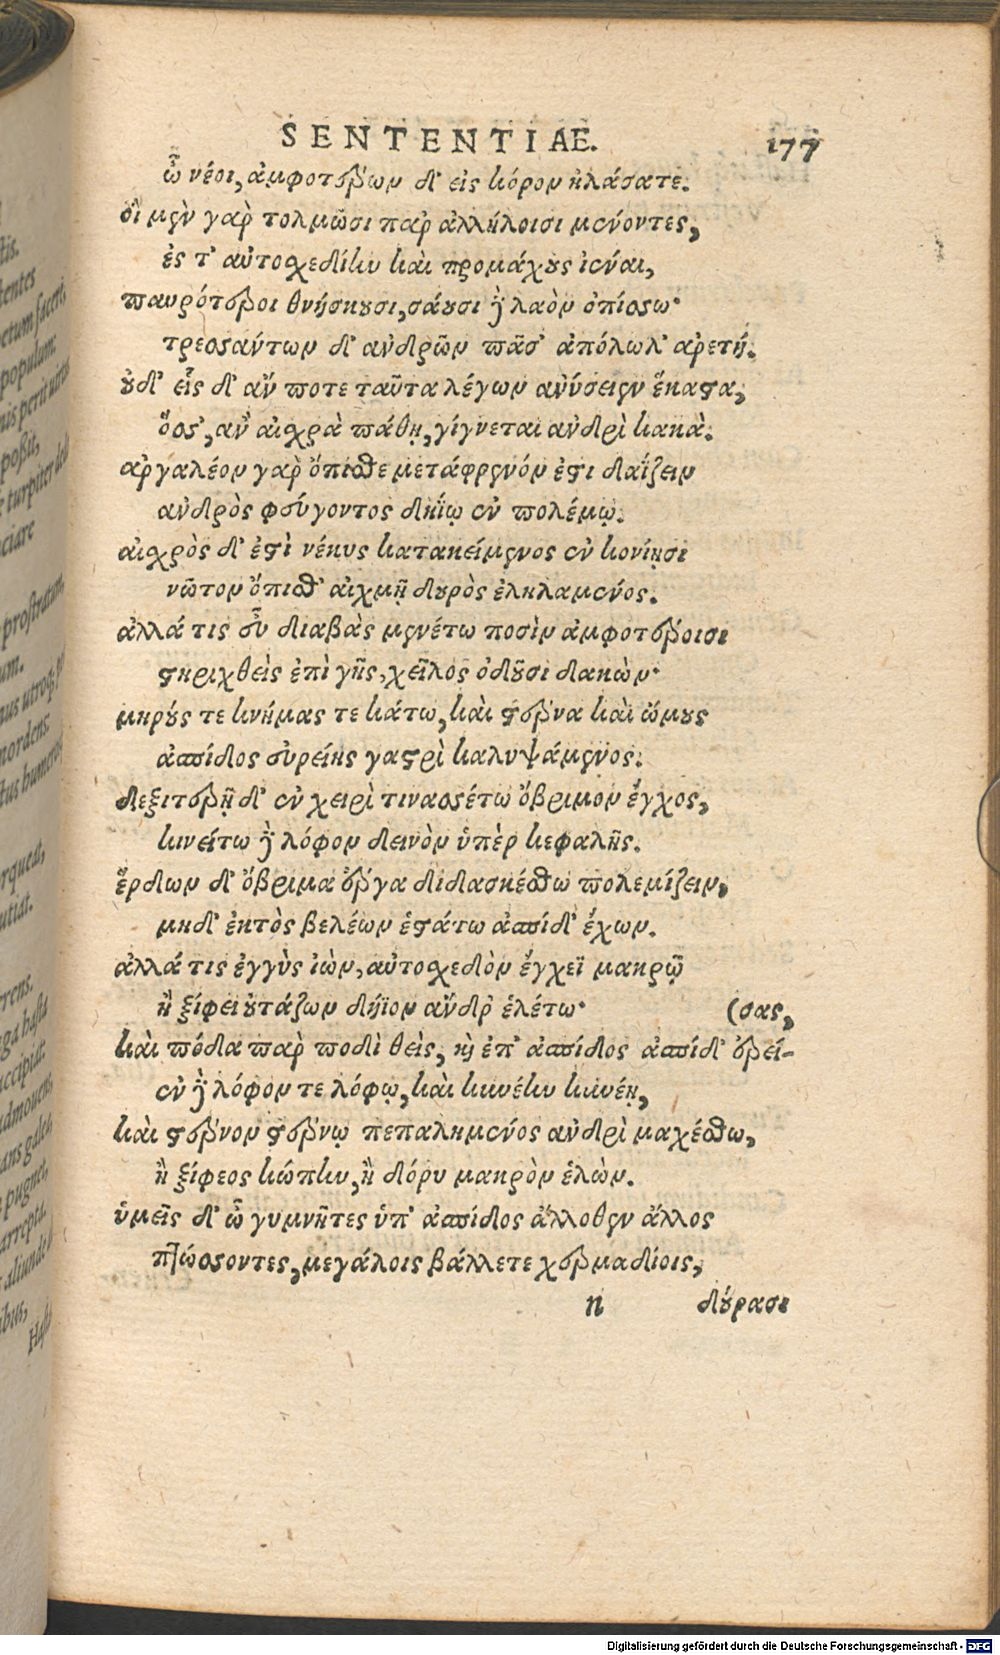 SENTENTIAE. 177
ὦ νέοι, ἀμφοτέρων δ' εἰς κόρον ἠλάσατε.
οἳ μὲν γὰρ τολμῶσι παρ' ἀλλήλοισι μένοντες,
ἐς τ' αὐτοσχεδίην καὶ προμάχους ἰέναι,
παυρότεροι θνήσκουσι, σάουσι δὲ λαὸν ὀπίσσω·
τρεσσάντων δ' ἀνδρῶν πᾶσ' ἀπόλωλ' ἀρετή.
οὐδ' εἷς δ' ἄν ποτε ταῦτα λέγων ἀνύσειεν ἕκαστα,
ὅσσ', ἂν αἰσχρὰ πάθῃ, γίγνεται ἀνδρὶ κακὰ.
ἀργαλέον γὰρ ὄπισθε μετάφρενόν ἐστι δαΐζειν
ἀνδρὸς φεύγοντος δηΐῳ ἐν πολέμῳ.
αἰσχρὸς δ' ἐστὶ νέκυς κατακείμενος ἐν κονίῃσι
νῶτον ὄπισθ' αἰχμῇ δουρὸς ἐληλαμένος.
ἀλλά τις εὖ διαβὰς μενέτω ποσὶν ἀμφοτέροισι
στηριχθεὶς ἐπὶ γῆς, χεῖλος ὀδοῦσι δακὼν·
μηρούς τε κνήμας τε κάτω, καὶ στέρνα καὶ ὤμους
ἀσπίδος εὐρείης γαστρὶ καλυψάμενος.
δεξιτερῇ δ' ἐν χειρὶ τινασσέτω ὄβριμον ἔγχος,
κινείτω δὲ λόφον δεινὸν ὑπὲρ κεφαλῆς.
ἔρδων δ' ὄβριμα ἔργα διδασκέσθω πολεμίζειν,
μηδ' ἐκτὸς βελέων ἑστάτω ἀσπίδ' ἔχων.
ἀλλά τις ἐγγὺς ἰὼν, αὐτοσχεδὸν ἔγχεϊ μακρῷ
ἢ ξίφει οὐτάζων δήϊον ἄνδρ' ἑλέτω· (σας,
καὶ πόδα παρ' ποδὶ θεὶς, καὶ ἐπ' ἀσπίδος ἀσπίδ' ἐρεί-
ἐν δὲ λόφον τε λόφῳ, καὶ κυνέην κυνέῃ,
καὶ στέρνον στέρνῳ πεπαλημένος ἀνδρὶ μαχέσθω,
ἢ ξίφεος κώπην, ἢ δόρυ μακρὸν ἑλὼν.
ὑμεῖς δ' ὦ γυμνῆτες ὑπ' ἀσπίδος ἄλλοθεν ἄλλος
πτώσσοντες, μεγάλοις βάλλετε χερμαδίοις,
n δούρασι
Digitalisierung gefördert durch die Deutsche Forschungsgemeinschaft - DFG